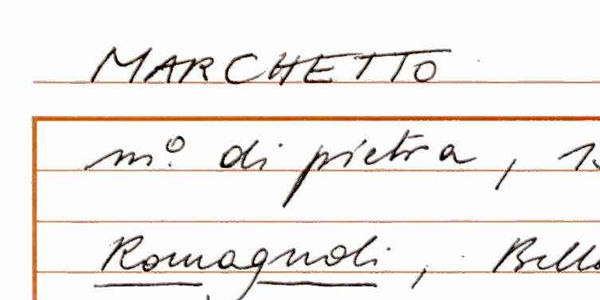 MARCHETTO
mº. di pietra,
Romagnoli,